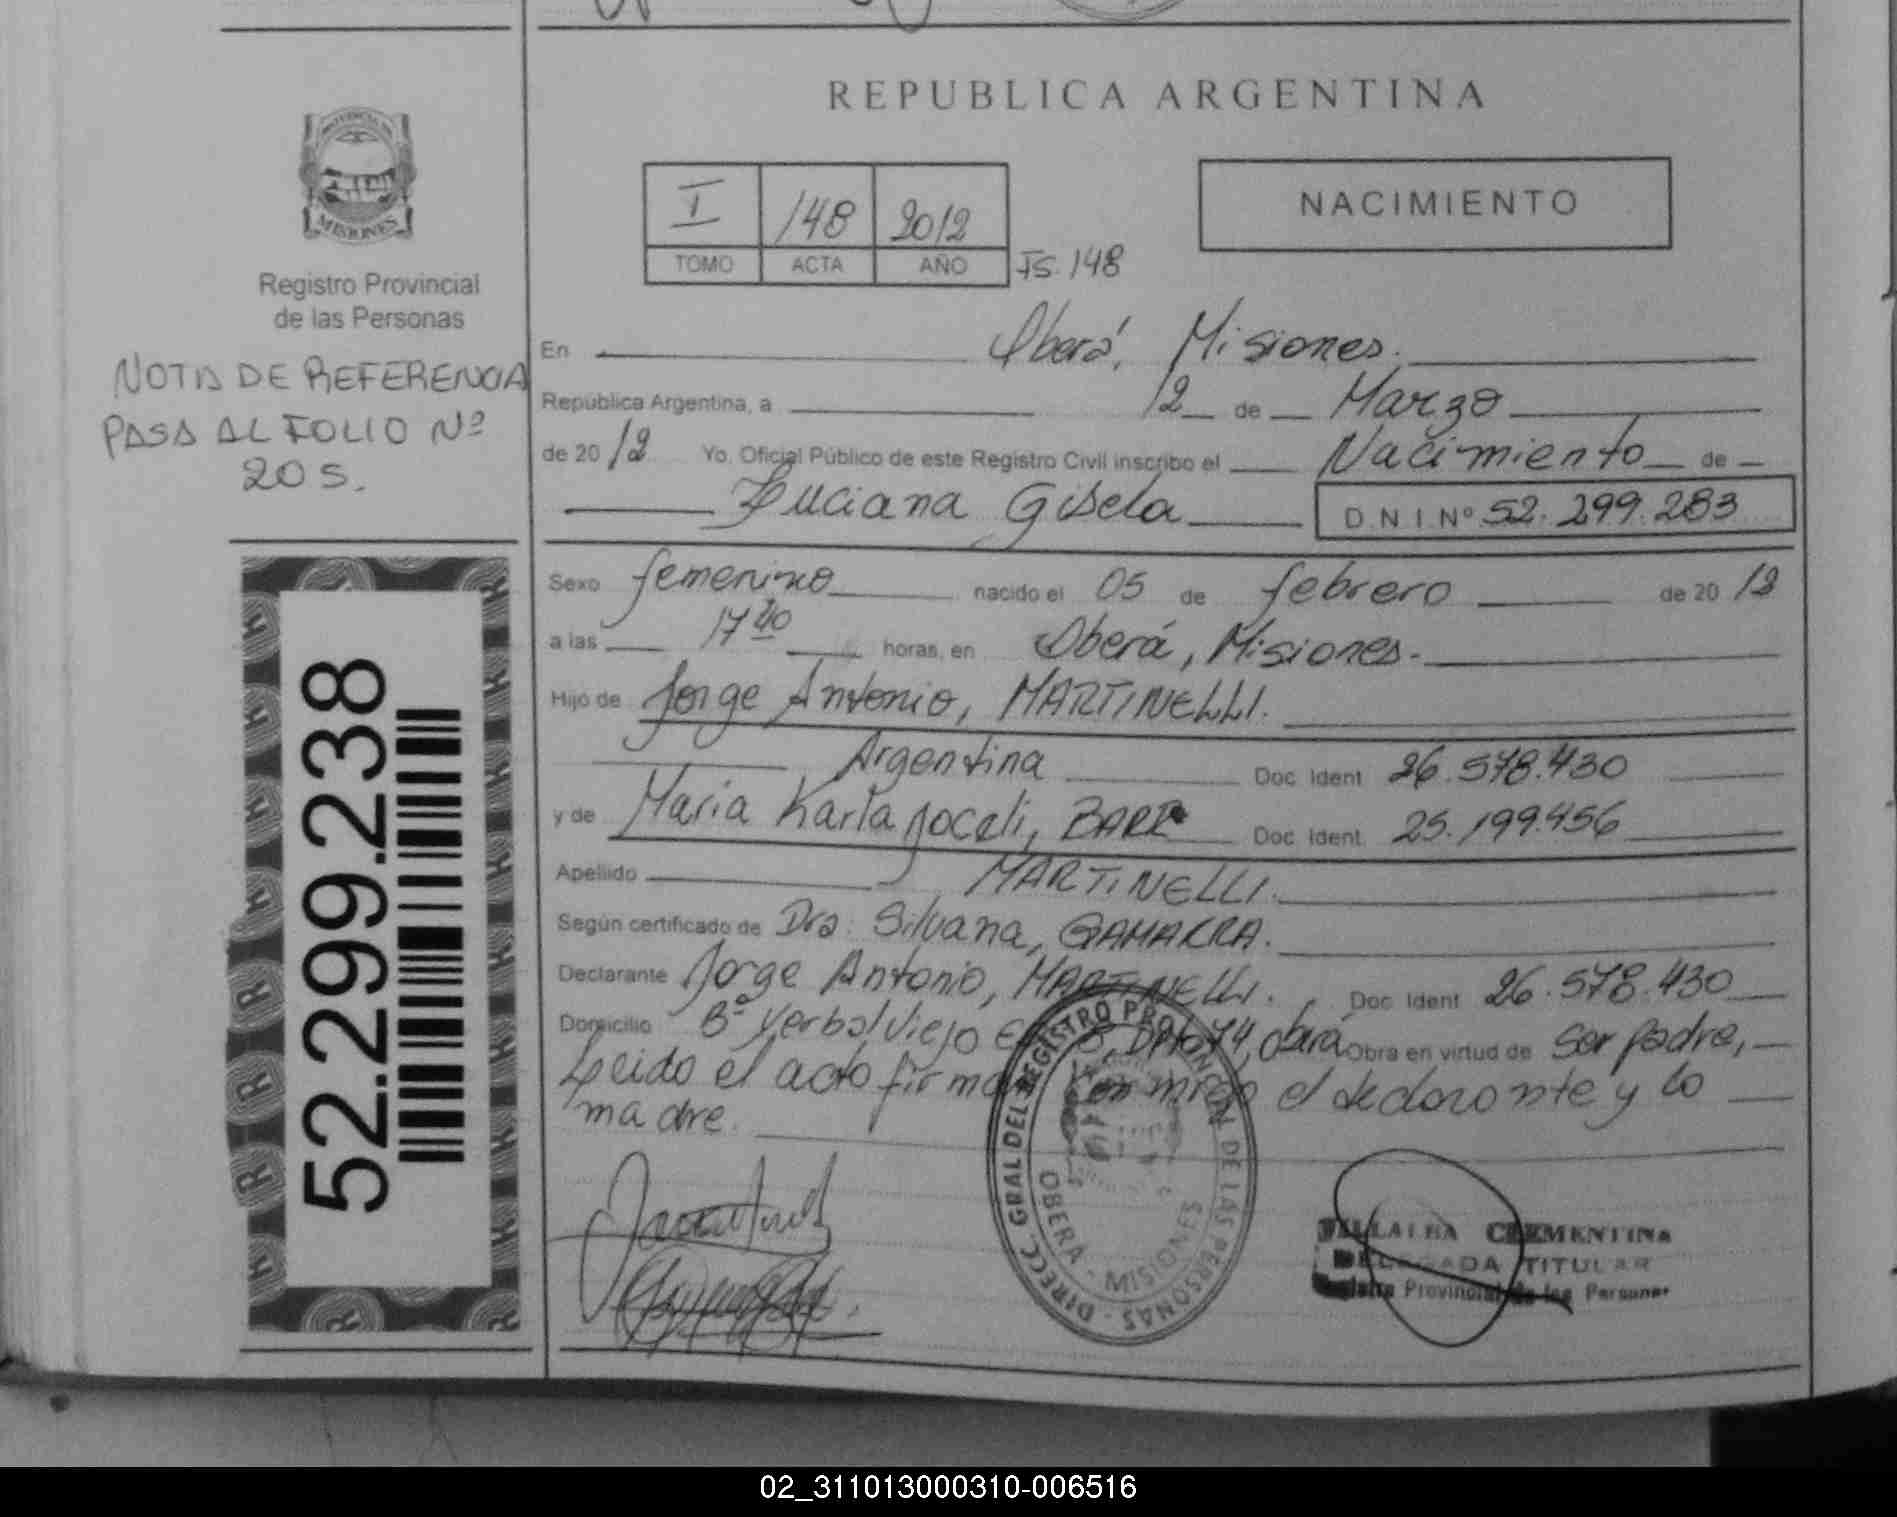 REPUBLICA ARGENTINA
PROVINCIA DE
MISIONES
Registro Provincial
de las Personas
I 148 2012
TOMO ACTA AÑO Fs. 148
NACIMIENTO
NOTA DE REFERENCIA
PASA AL FOLIO Nº
205.
En Oberá, Misiones.
Republica Argentina, a 12 de Marzo
de 2012 Yo, Oficial Público de este Registro Civil inscribo el Nacimiento de
Luciana Gisela D N I Nº 52.299.283
Sexo femenino nacido el 05 de febrero de 2012
a las 17 40 horas, en Oberá, Misiones.
Hijo de Jorge Antonio, MARTINELLI.
Argentina Doc Ident 26.578.430
y de Maria Karla Joceli, Doc Ident 25.199.456
Apellido MARTINELLI.
Según certificado de Dra. Silvana, GAMARRA.
Declarante Jorge Antonio, MARTINELLI. Doc Ident 26.578.430
Domicilio Bº Yerbal Viejo Dpto 74, Oberá Obra en virtud de ser padre,
Leido el acto firman el declarante y la
madre.
52.299.238
DIRECC. GRAL DEL REGISTRO PROVINCIAL DE LAS PERSONAS
OBERA - MISIONES
VILLALBA CLEMENTINA
DELEGADA TITULAR
Provincial de las Personas
02_311013000310-006516